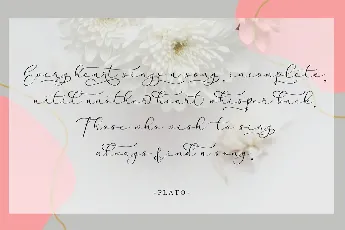 Every heart sings a song, incomplete,
until another heart whispers back.
Those who wish to sing
always find a song.
-PLATO-